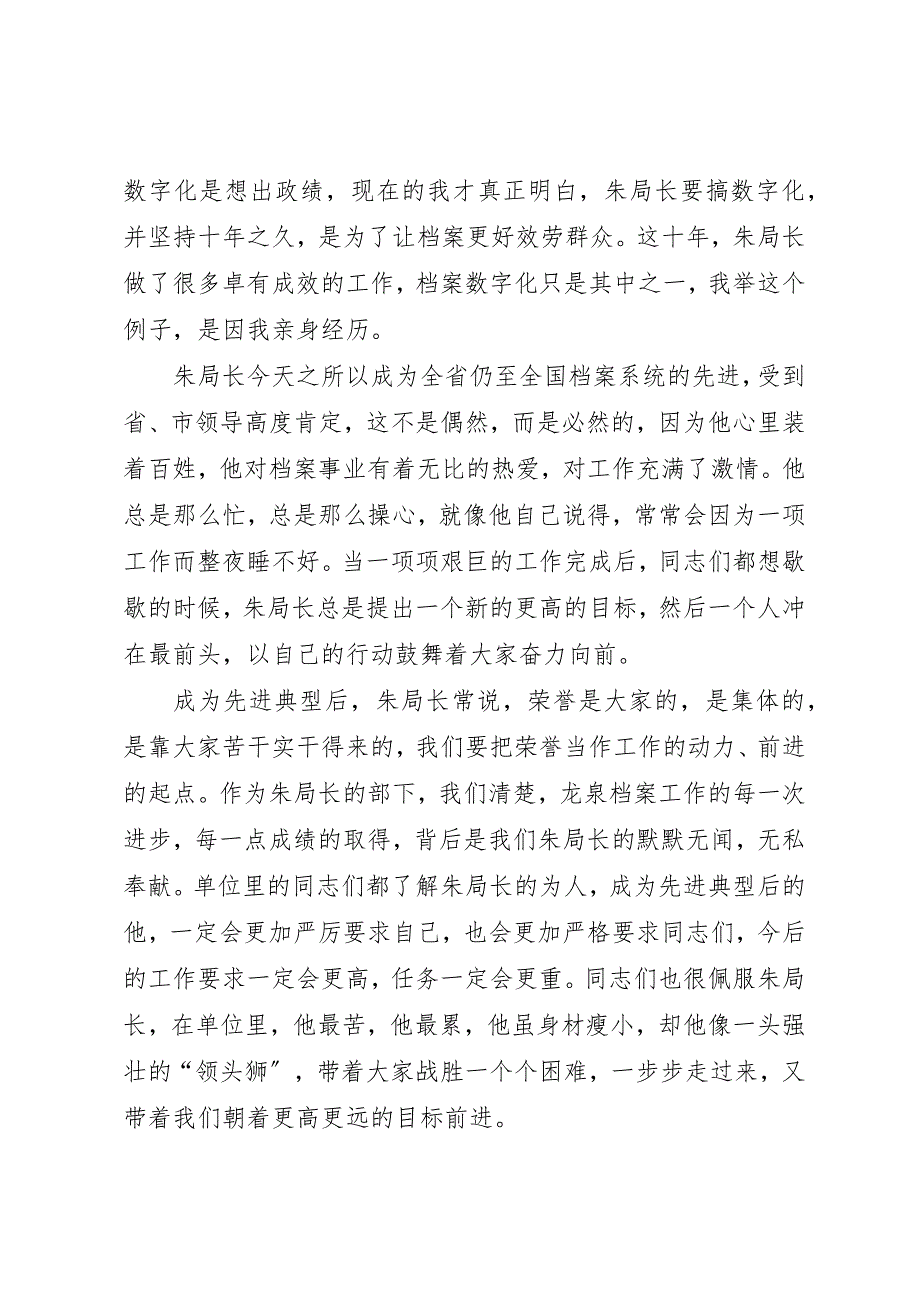 数字化是想出政绩，现在的我才真正明白，朱局长要搞数字化，
并坚持十年之久，是为了让档案更好效劳群众。这十年，朱局长
做了很多卓有成效的工作，档案数字化只是其中之一，我举这个
例子，是因我亲身经历。
朱局长今天之所以成为全省仍至全国档案系统的先进，受到
省、市领导高度肯定，这不是偶然，而是必然的，因为他心里装
着百姓，他对档案事业有着无比的热爱，对工作充满了激情。他
总是那么忙，总是那么操心，就像他自己说得，常常会因为一项
工作而整夜睡不好。当一项项艰巨的工作完成后，同志们都想歇
歇的时候，朱局长总是提出一个新的更高的目标，然后一个人冲
在最前头，以自己的行动鼓舞着大家奋力向前。
成为先进典型后，朱局长常说，荣誉是大家的，是集体的，
是靠大家苦干实干得来的，我们要把荣誉当作工作的动力、前进
的起点。作为朱局长的部下，我们清楚，龙泉档案工作的每一次
进步，每一点成绩的取得，背后是我们朱局长的默默无闻，无私
奉献。单位里的同志们都了解朱局长的为人，成为先进典型后的
他，一定会更加严厉要求自己，也会更加严格要求同志们，今后
的工作要求一定会更高，任务一定会更重。同志们也很佩服朱局
长，在单位里，他最苦，他最累，他虽身材瘦小，却他像一头强
壮的“领头狮〞，带着大家战胜一个个困难，一步步走过来，又
带着我们朝着更高更远的目标前进。